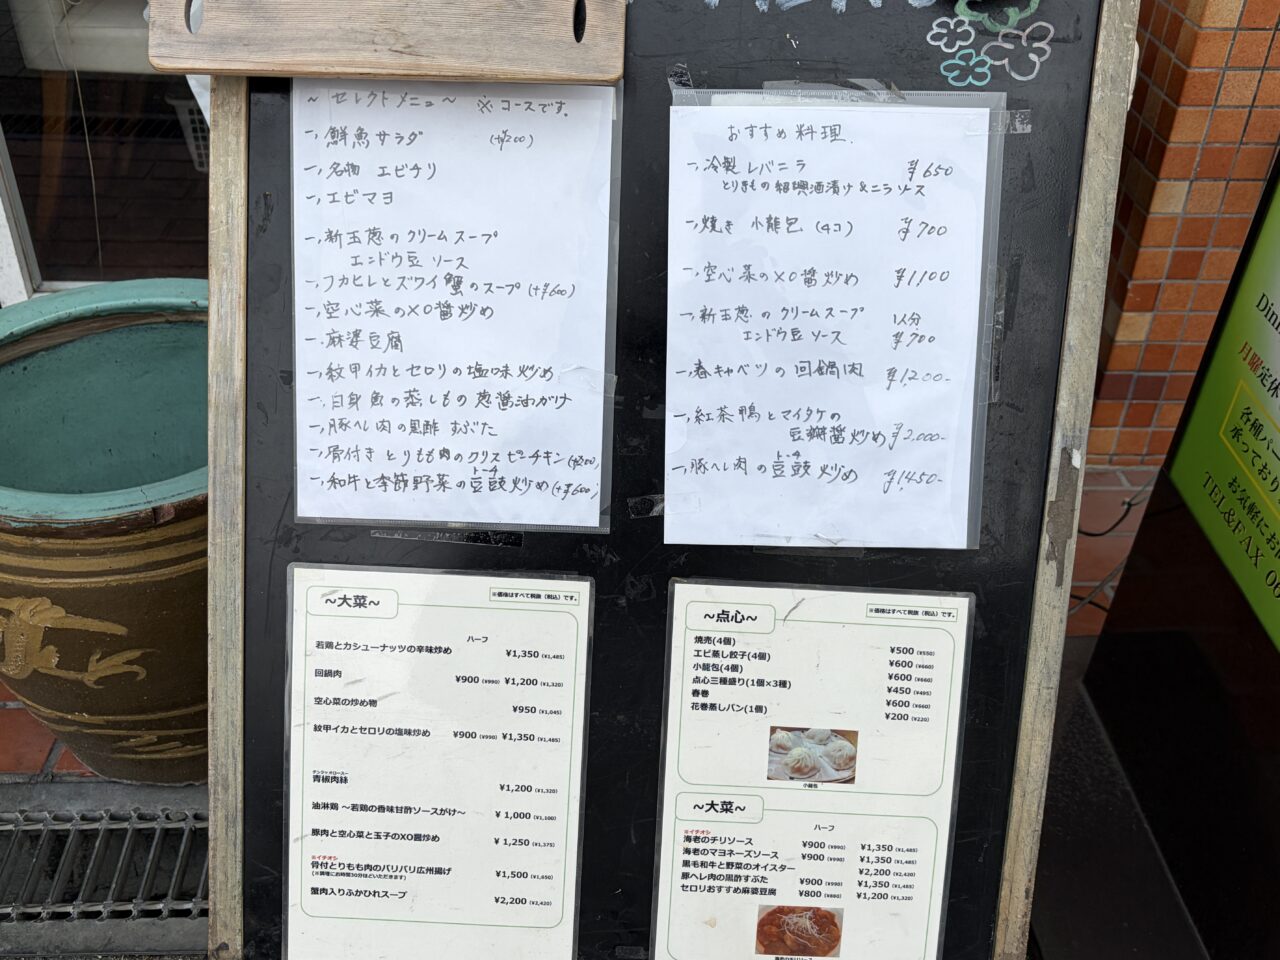 ～セレクトメニュー～ ※コースです。
一、鮮魚サラダ (+¥200)
一、名物 エビチリ
一、エビマヨ
一、新玉葱のクリームスープ
エンドウ豆ソース
一、フカヒレとズワイ蟹のスープ(+¥600)
一、空心菜のXO醤炒め
一、麻婆豆腐
一、紋甲イカとセロリの塩味炒め
一、白身魚の蒸しもの葱醤油がけ
一、豚ヘレ肉の黒酢すぶた
一、骨付きとりもも肉のクリスピーチキン
トーチ
一、和牛と季節野菜の豆豉炒め(+¥600)
おすすめ料理.
一、冷製レバニラ ¥650
とりきもの紹興酒漬け&ニラソース
一、焼き 小龍包 (4コ) ¥700
一、空心菜のXO醤炒め ¥1,100
一、新玉葱のクリームスープ 1人分
エンドウ豆ソース ¥700
一、春キャベツの回鍋肉 ¥1,200-
一、紅茶鴨とマイタケの
豆瓣醤炒め ¥2,000-
トーチ
一、豚ヘレ肉の豆豉炒め ¥1,450-
～大菜～
※価格はすべて税抜（税込）です。
ハーフ
若鶏とカシューナッツの辛味炒め ¥1,350 (¥1,485)
回鍋肉 ¥900 (¥990) ¥1,200 (¥1,320)
空心菜の炒め物 ¥950 (¥1,045)
紋甲イカとセロリの塩味炒め ¥900 (¥990) ¥1,350 (¥1,485)
チンジャオロースー
青椒肉絲 ¥1,200 (¥1,320)
油淋鶏 ～若鶏の香味甘酢ソースがけ～ ¥ 1,000 (¥1,100)
豚肉と空心菜と玉子のXO醤炒め ¥ 1,250 (¥1,375)
※イチオシ
骨付とりもも肉のパリパリ広州揚げ ¥1,500 (¥1,650)
(※調理にお時間30分ほどいただきます)
蟹肉入りふかひれスープ ¥2,200 (¥2,420)
～点心～
※価格はすべて税抜（税込）です。
焼売(4個) ¥500 (¥550)
エビ蒸し餃子(4個) ¥600 (¥660)
小龍包(4個) ¥600 (¥660)
点心三種盛り(1個×3種) ¥450 (¥495)
春巻 ¥600 (¥660)
花巻蒸しパン(1個) ¥200 (¥220)
小龍包
～大菜～
ハーフ
※イチオシ
海老のチリソース ¥900 (¥990) ¥1,350 (¥1,485)
海老のマヨネーズソース ¥900 (¥990) ¥1,350 (¥1,485)
黒毛和牛と野菜のオイスター ¥2,200 (¥2,420)
豚ヘレ肉の黒酢すぶた ¥900 (¥990) ¥1,350 (¥1,485)
セロリおすすめ麻婆豆腐 ¥800 (¥880) ¥1,200 (¥1,320)
海老のチリソース
月曜定休
各種パー
承っており
お気軽にお
TEL&FAX 06